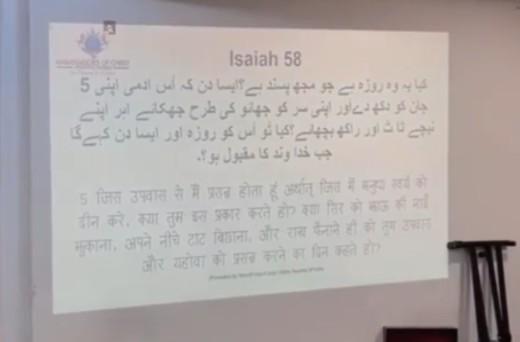 AMBASSADORS OF CHRIST
Isaiah 58
5 کیا یہ وہ روزہ ہے جو مجھ پسند ہے؟ایسا دن کہ اُس ادمی اپنی
جان کو دکھ دےاور اپنی سر کو جھانو کی طرح جھکانے ابر اپنے
نیچے ٹا ٹ اور راکھ بچھانے؟کیا تُو اُس کو روزہ اور ایسا دن کہےگا
جب خدا وند کا مقبول ہو؟۔
5 जिस उपवास से मैं प्रसन्न होता हूं अर्थात् जिस में मनुष्य स्वयं को
दीन करे, क्या तुम इस प्रकार करते हो? क्या सिर को झाऊ की नाईं
झुकाना, अपने नीचे टाट बिछाना, और राख फैलाने ही को तुम उपवास
और यहोवा को प्रसन्न करने का दिन कहते हो?